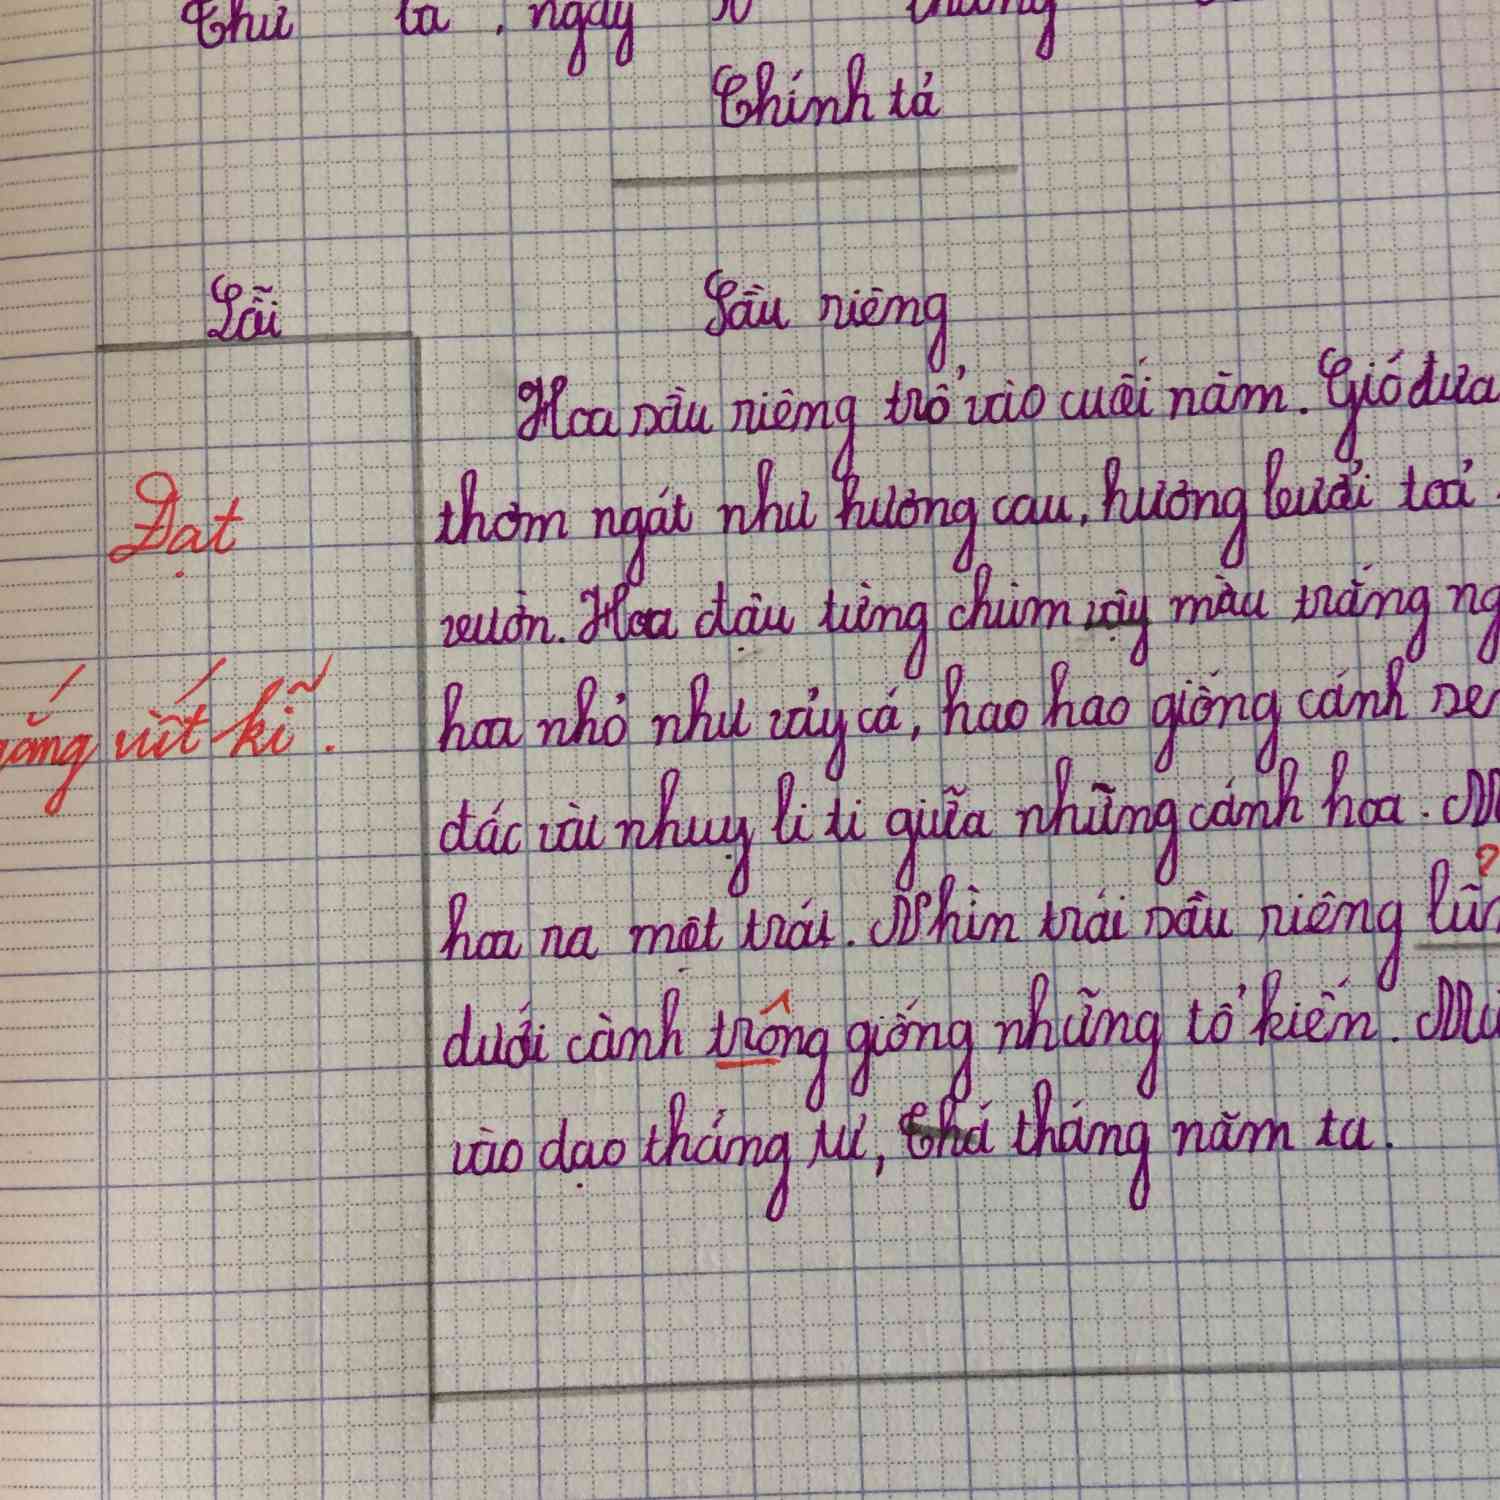 Thứ ba, ngày
Chính tả
Lỗi
Sầu riêng
Hoa sầu riêng trổ vào cuối năm. Gió đưa
Đạt
thơm ngát như hương cau, hương bưởi toả
vườn. Hoa đậu từng chùm vậy màu trắng ng
hoa nhỏ như vảy cá, hao hao giống cánh sen
viết kĩ.
đác vài nhuỵ li ti giữa những cánh hoa.
hoa ra một trái. Nhìn trái sầu riêng lũn
dưới cành trông giống những tổ kiến.
vào dạo tháng tư, thá tháng năm ta.